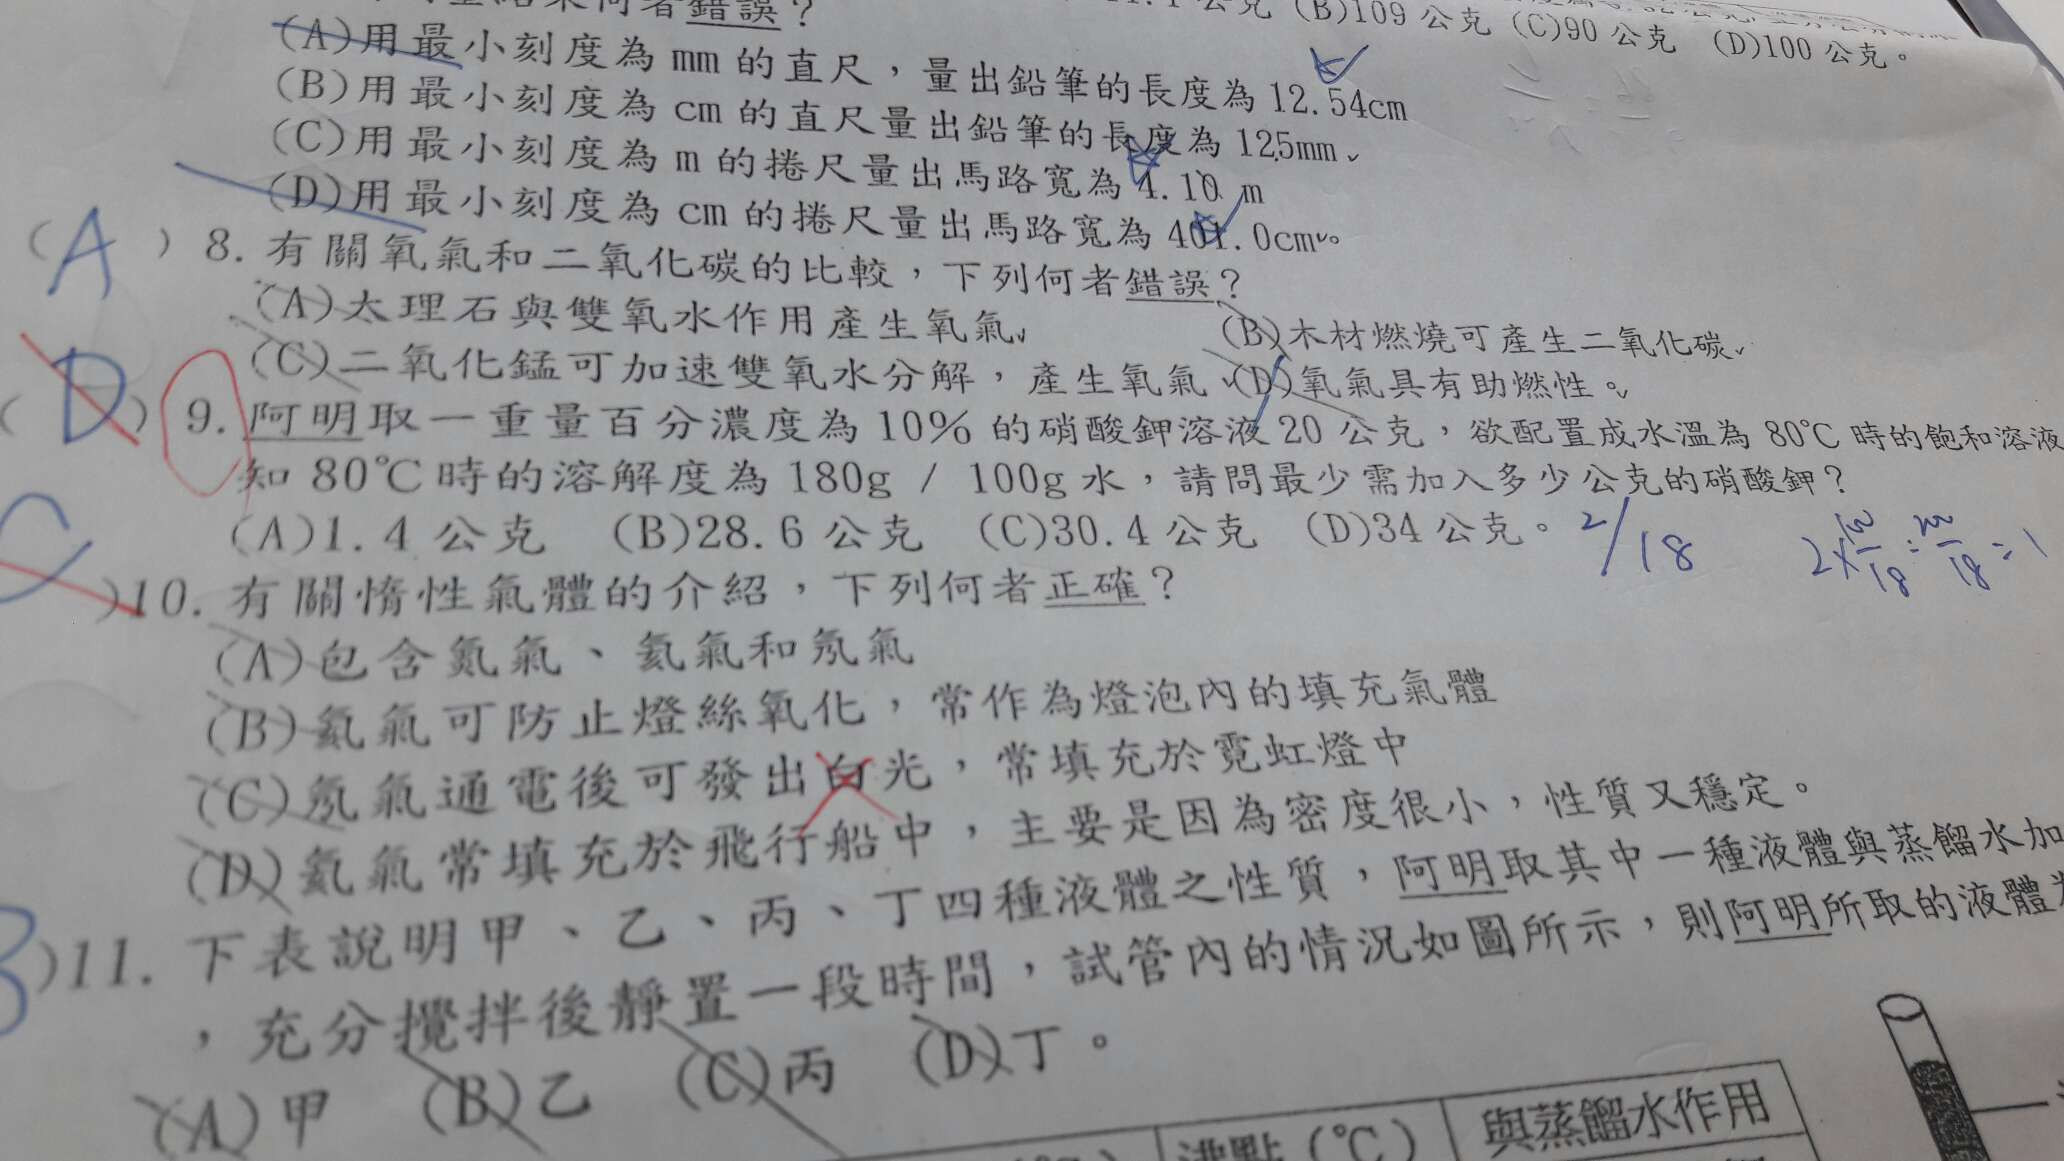 錯誤？
公克 (B)109 公克 (C)90 公克 (D)100 公克。
(A)用最小刻度為 mm 的直尺，量出鉛筆的長度為 12.54cm
(B)用最小刻度為 cm 的直尺量出鉛筆的長度為 125mm
(C)用最小刻度為 m 的捲尺量出馬路寬為 4.10 m
(D)用最小刻度為 cm 的捲尺量出馬路寬為 401.0cm。
( A ) 8. 有關氧氣和二氧化碳的比較，下列何者錯誤？
(A)大理石與雙氧水作用產生氧氣 (B)木材燃燒可產生二氧化碳
(C)二氧化錳可加速雙氧水分解，產生氧氣 (D)氧氣具有助燃性。
( D ) 9. 阿明取一重量百分濃度為 10% 的硝酸鉀溶液 20 公克，欲配置成水溫為 80℃ 時的飽和溶液
知 80℃時的溶解度為 180g / 100g 水，請問最少需加入多少公克的硝酸鉀？
(A)1.4 公克 (B)28.6 公克 (C)30.4 公克 (D)34 公克。 2/18
C )10. 有關惰性氣體的介紹，下列何者正確？
(A)包含氮氣、氦氣和氖氣
(B)氦氣可防止燈絲氧化，常作為燈泡內的填充氣體
(C)氖氣通電後可發出白光，常填充於霓虹燈中
(D)氦氣常填充於飛行船中，主要是因為密度很小，性質又穩定。
)11. 下表說明甲、乙、丙、丁四種液體之性質，阿明取其中一種液體與蒸餾水加
，充分攪拌後靜置一段時間，試管內的情況如圖所示，則阿明所取的液體
(A)甲 (B)乙 (C)丙 (D)丁。
沸點(℃) 與蒸餾水作用